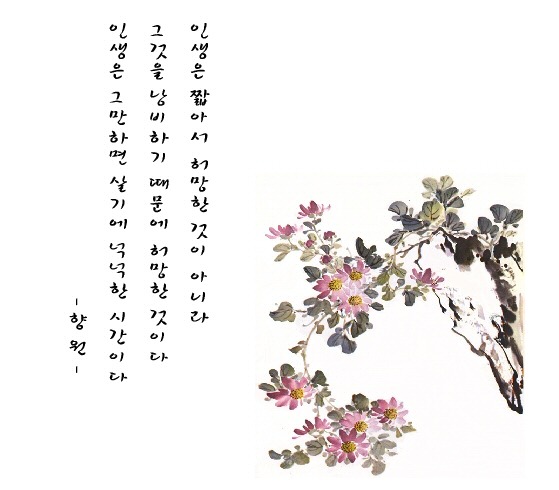 인생은 짧아서 허망한 것이 아니라
그것을 낭비하기 때문에 허망한 것이다
인생은 그만하면 살기에 넉넉한 시간이다
-향원-